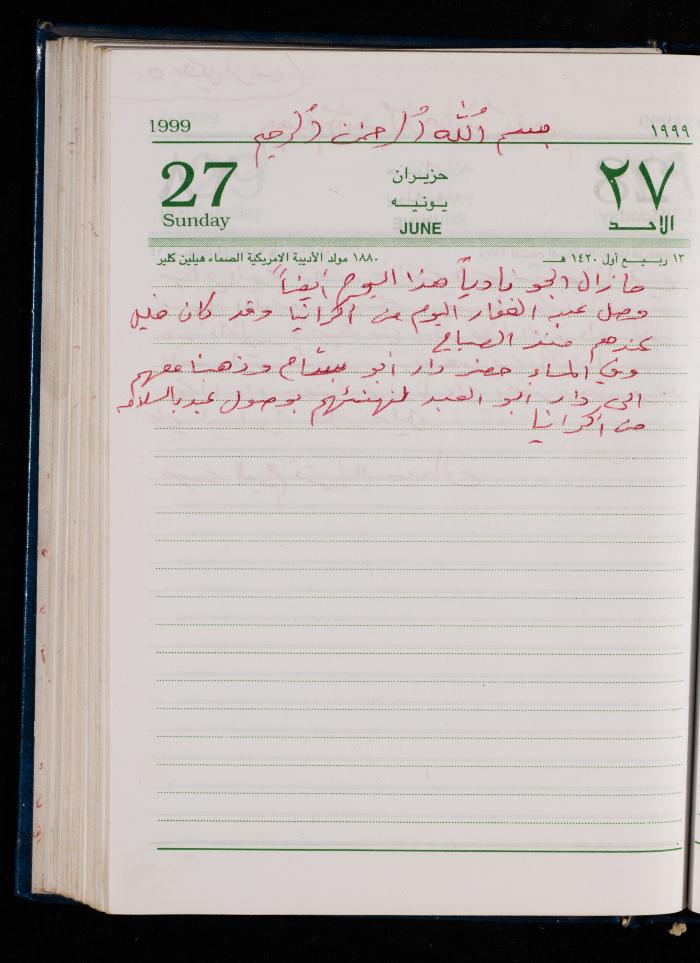 بسم الله الرحمن الرحيم
1999 ١٩٩٩
27 حزيران ٢٧
Sunday يونيه الاحد
JUNE
١٣ ربيع أول ١٤٢٠ هـ ١٨٨٠ مولد الأديبة الامريكية الصماء هيلين كلير
ما زال الجو نادياً هذا اليوم أيضاً
وصل عبد الغفار اليوم من أكرانيا وقد كان خليل
عندهم منذ الصباح
وفي المساء حضر دار أبو بسام وذهبنا معهم
الى دار أبو العبد لنهنئهم بوصول عبد بالسلامه
من أكرانيا